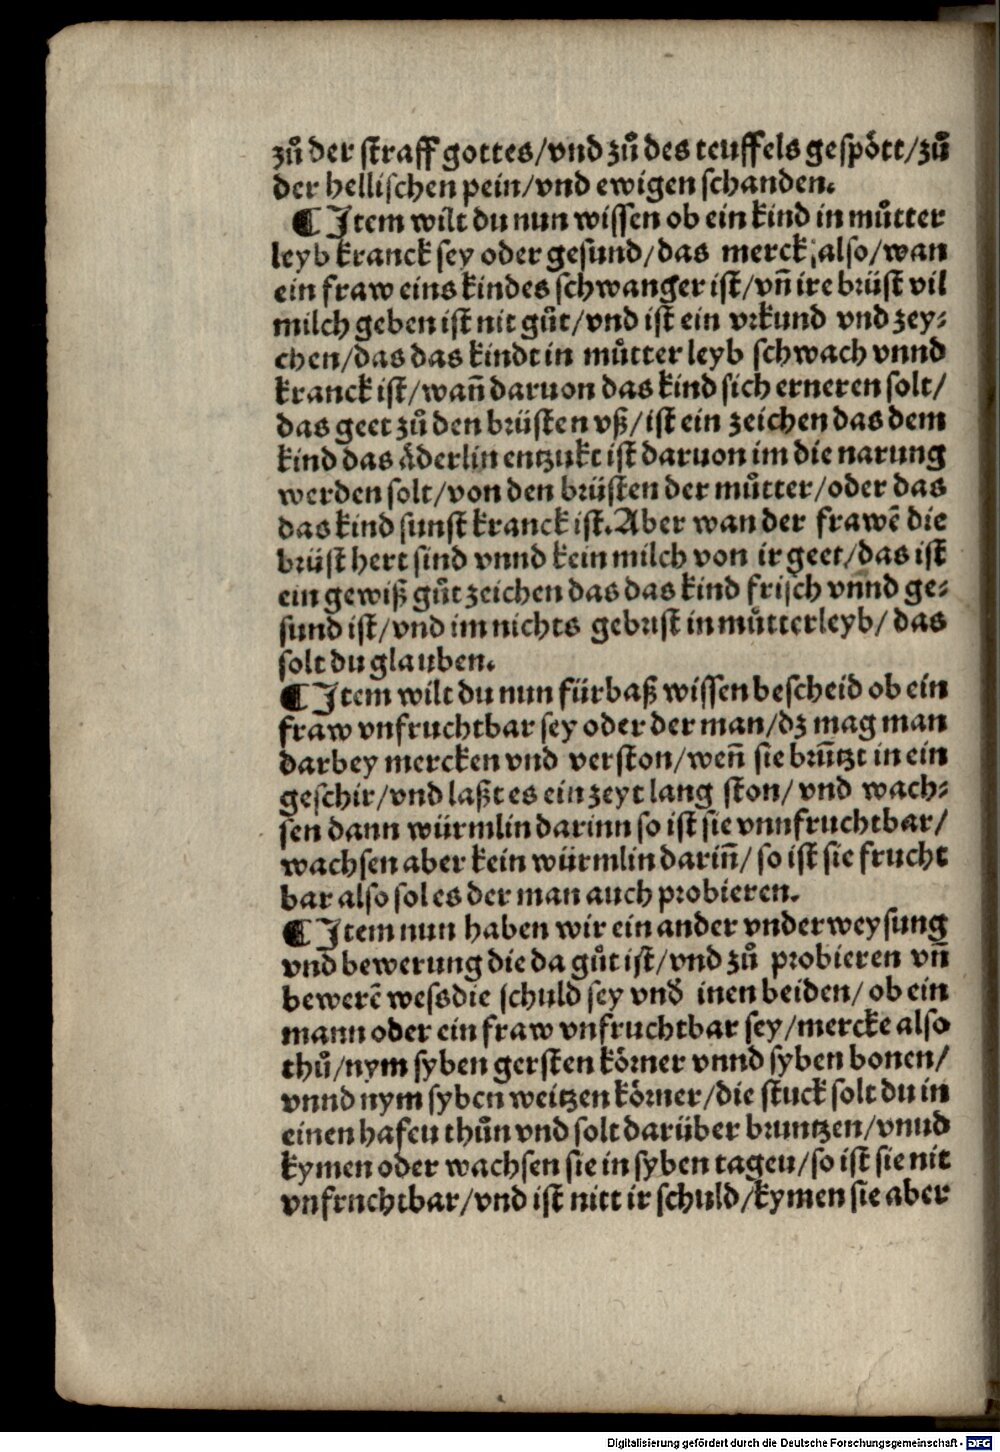 zů der straff gottes/vnd zů des teuffels gespött/zů
der hellischen pein/vnd ewigen schanden.
¶ Item wilt du nun wissen ob ein kind in můtter
leyb kranck sey oder gesund/das merck also/wan
ein fraw eins kindes schwanger ist/vñ ire brüst vil
milch geben ist nit gůt/vnd ist ein vrkund vnd zey⸗
chen/das das kindt in můtter leyb schwach vnnd
kranck ist/wañ daruon das kind sich erneren solt/
das geet zů den brüsten vß/ist ein zeichen das dem
kind das äderlin entzukt ist daruon im die narung
werden solt/von den brüsten der můtter/oder das
das kind sunst kranck ist. Aber wan der frawē die
brüst hert sind vnnd kein milch von ir geet/das ist
ein gewiß gůt zeichen das das kind frisch vnnd ge⸗
sund ist/vnd im nichts gebrist in můtterleyb/das
solt du glauben.
¶ Item wilt du nun fürbaß wissen bescheid ob ein
fraw vnfruchtbar sey oder der man/dz mag man
darbey mercken vnd verston/weñ sie brũtzt in ein
geschir/vnd laßt es ein zeyt lang ston/vnd wach⸗
sen dann würmlin darinn so ist sie vnnfruchtbar/
wachsen aber kein würmlin dariñ/so ist sie frucht
bar also sol es der man auch probieren.
¶ Item nun haben wir ein ander vnderweysung
vnd bewerung die da gůt ist/vnd zů probieren vñ
bewerē wess die schuld sey vnd inen beiden/ob ein
mann oder ein fraw vnfruchtbar sey/mercke also
thů/nym syben gersten körner vnnd syben bonen/
vnnd nym syben weitzen körner/die stuck solt du in
einen hafeu thůn vnd solt darüber bruntzen/vnud
kymen oder wachsen sie in syben tageu/so ist sie nit
vnfruchtbar/vnd ist nitt ir schuld/kymen sie aber
Digitalisierung gefördert durch die Deutsche Forschungsgemeinschaft - DFG